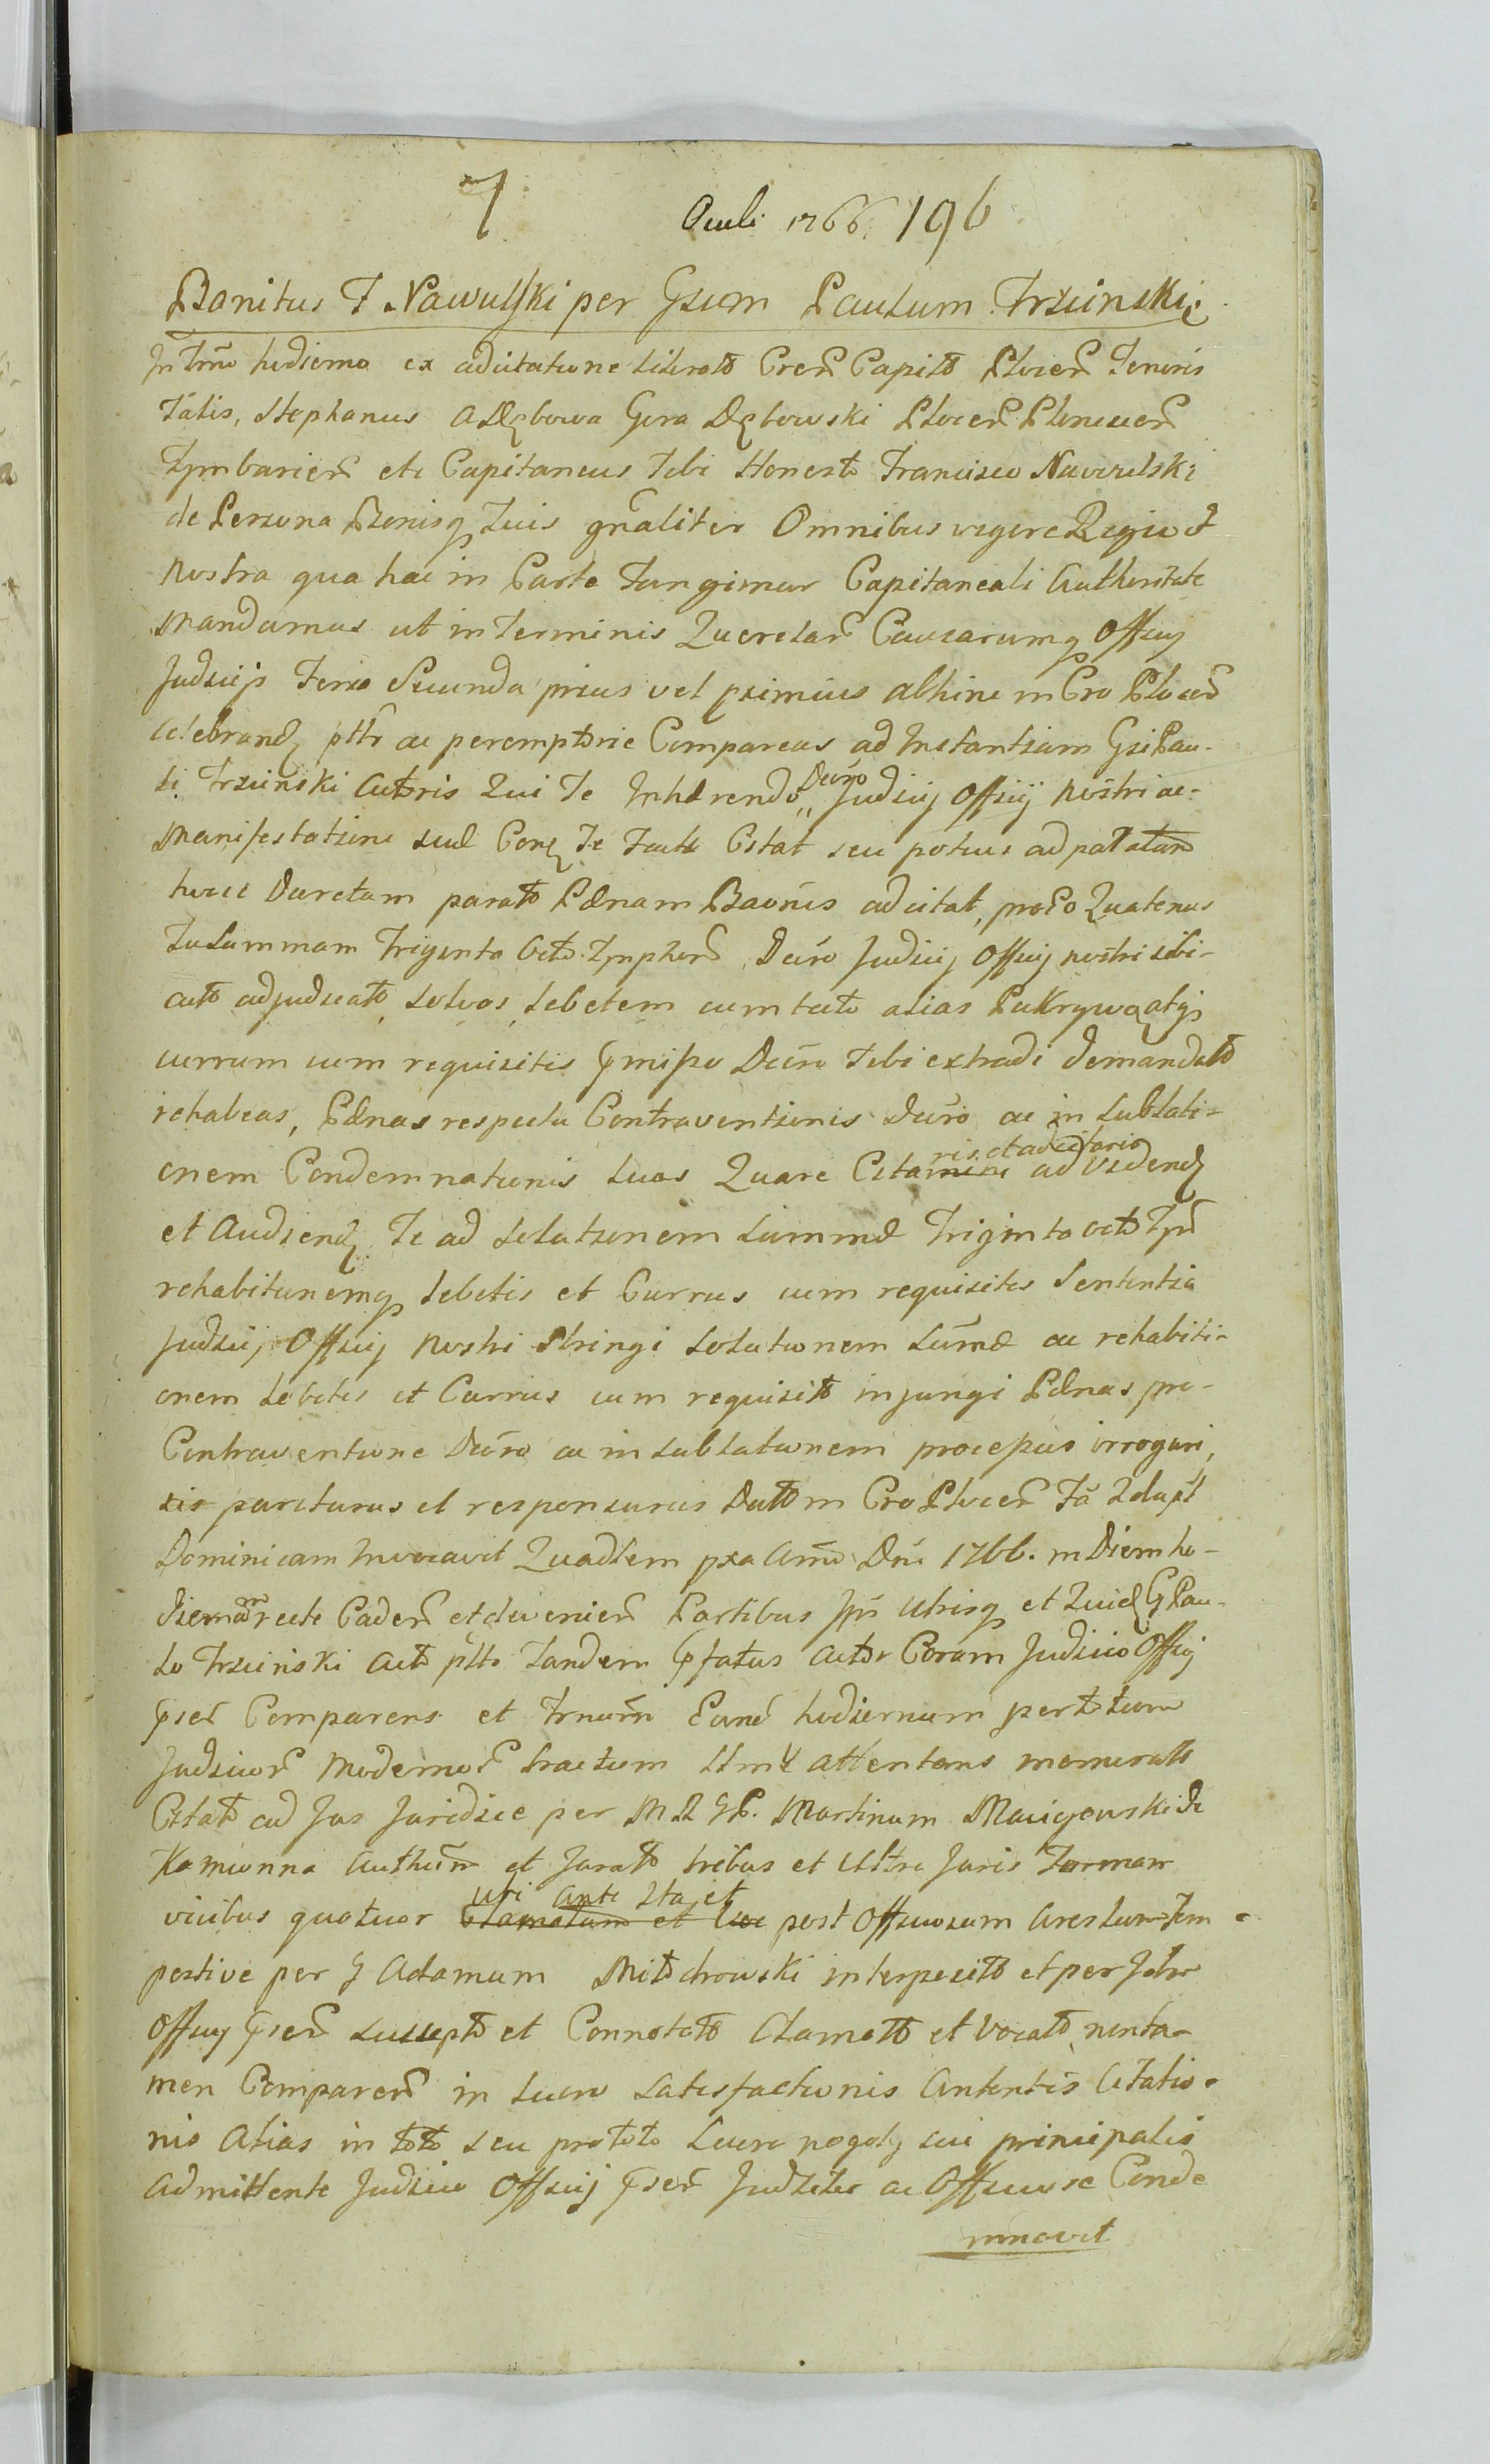 7 Oculi 1766. 196
Banitus F Nawulski per Gsum Paulum Trzcinski
In Trno hodierno ex adcitatione literato Cren Capito Plocen Tenoris
Talis, Stephanus a Dębowa Gora Dębowski Plocen Plonscen
Tymbarien etc Capitaneus Tibi Honesto Francisco Nawulski
de Persona Bonisq Tuis gnaliter Omnibus vigore Regia et
nostra qua hac in Parte fungimur Capitaneali Authoritate
Mandamus ut in Terminis Querelar Causarumq Officij
Judicijs Feria Secunda prius vel primius abhinc in Cro Plocen
celebrand pttr ac peremptorie Compareas ad Instantiam Gsi Pau-
li Trzcinski Actoris Qui Te Inhærendo Decro Judicij Officij nostri ac
Manifestationi suæ Conq Te factæ Citat seu potius ad
huic Decretum parato Pænam Baonis adcitat, pro Eo Quatenus
Tu Summam Triginta Octo Tynphor Decro Judicij Officij nostri sibi-
acto adjudicato solvas, Lebetem cum tecto alias Pokrywą atqs
currum cum requisitis Pmisso Decro Tibi extradi demandato
rehabeas, Pænas respectu Contraventionis Decro ac in sublati-
onem Condemnationis luas Quare Citaris et adcitaris ad Vidend
et Audiend Te ad Solutionem Summæ Triginta octo Tyn
rehabitionemq Lebetis et Currus cum requisitis Sententia
Judicij Officij nostri Stringi Solutionem Sumæ ac rehabiti-
onem Lebetis et Currus cum requisito injungi Pænas pro
Contraventione Decro ac in sublationem processus irrogari,
sis pariturus et responsurus Datt in Cro Plocen Fa 2da pt
Dominicam Invocavit Quadlem pxa Anno Dni 1766. in Diem ho-
diernam recte Caden et devenien Partibus Ipis Utrisq et Quid G Pau-
lo Trzcinski Acto ptto Tandem Pfatus Actor Coram Judicio Officij
Psen Comparens et Trnum Eund hodiernum peremptorium
Judicior Modernor tractum attentans memorato
Citato ad Jus Juridice per M. Q. GP. Martinum Macigowski de
Kamionna Authum et Jurato tribus et Ultra Juris formam
vicibus quatuor uti ante Ita et post Officiosum Arestum Tem
pestive per G Adamum Mitochowski interposito et per
Officij Psen suscepto et Connotato Clamato et Vocato nonta-
men Comparen in Lucro satisfactionis Antentis Citatio-
nis Alias in toto seu pro toto Lucro negoty sui principalis
admittente Judicio Officij Psen Judlter ac Officiose Conde
mnavit